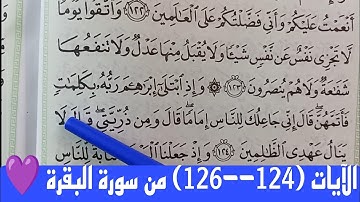 أَنْعَمْتُ عَلَيْكُمْ وَأَنِّي فَضَّلْتُكُمْ عَلَى الْعَالَمِينَ ﴿١٢٢﴾ وَاتَّقُوا يَوْمًا
لَا تَجْزِي نَفْسٌ عَنْ نَفْسٍ شَيْئًا وَلَا يُقْبَلُ مِنْهَا عَدْلٌ وَلَا تَنْفَعُهَا
شَفَاعَةٌ وَلَا هُمْ يُنْصَرُونَ ﴿١٢٣﴾ وَإِذِ ابْتَلَىٰ إِبْرَاهِيمَ رَبُّهُ بِكَلِمَاتٍ
فَأَتَمَّهُنَّ قَالَ إِنِّي جَاعِلُكَ لِلنَّاسِ إِمَامًا قَالَ وَمِنْ ذُرِّيَّتِي قَالَ لَا
يَنَالُ عَهْدِي الظَّالِمِينَ ﴿١٢٤﴾ وَإِذْ جَعَلْنَا مَثَابَةً لِلنَّاسِ
الآيات (124--126) من سورة البقرة